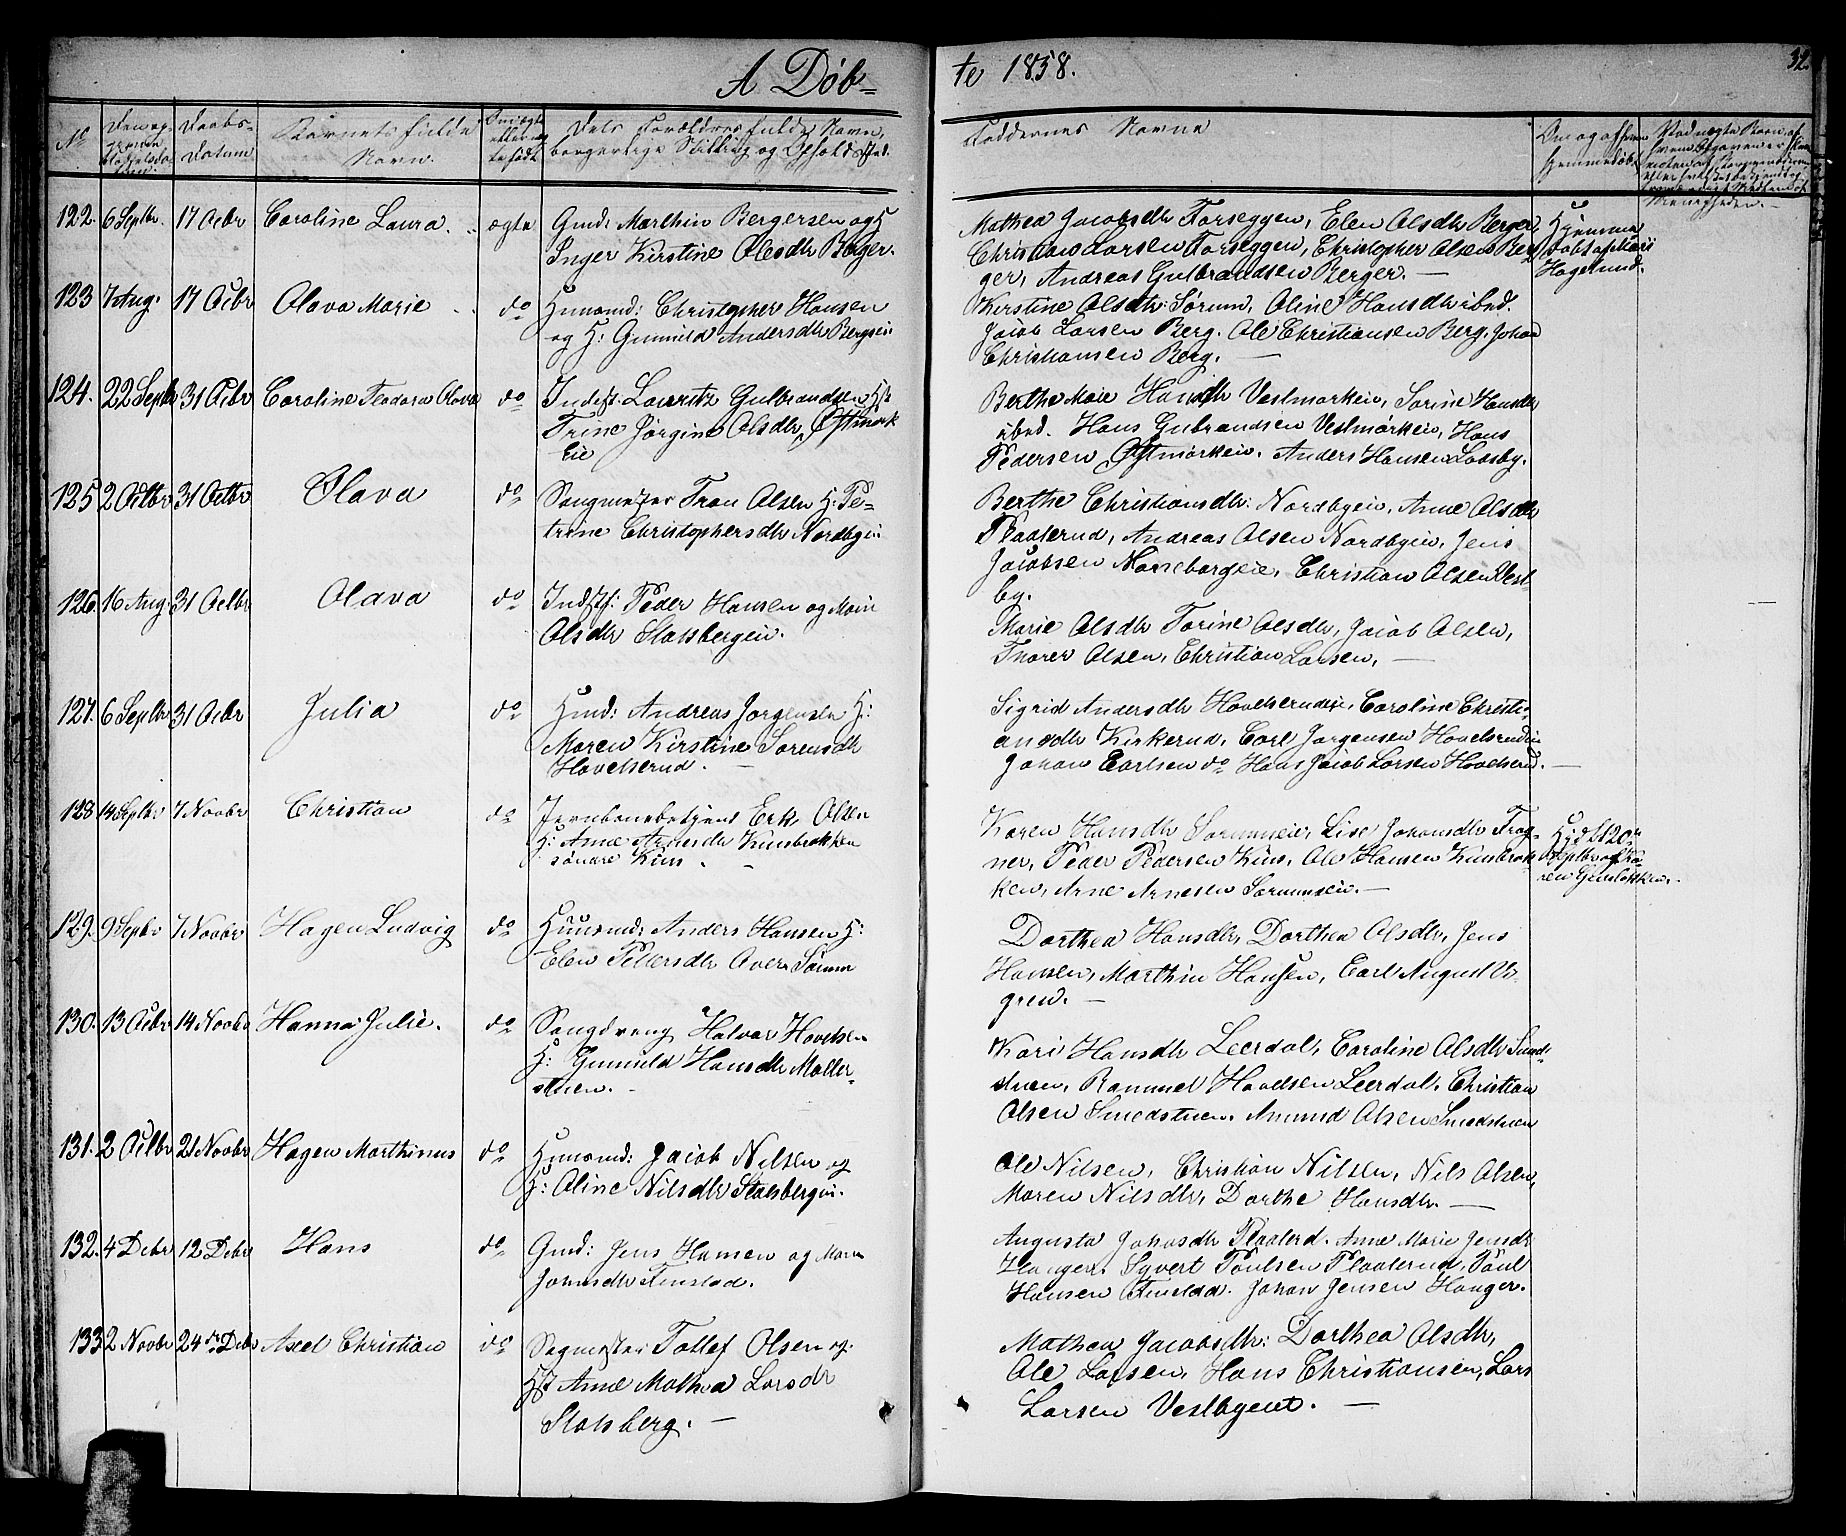 A Døb=
te 1858.
32.
No
Daabs=
Datum
Barnets fulde
Navn.
Dets Forældres fulde Navn,
borgerlige Stilling og Opholdssted.
Faddernes Navne
122. 6 Septbr 17 Octbr Caroline Laura ægte Gmd: Marthin Bergersen og H
Inger Kirstine Olesdtr Berger.
Mathea Jacobsdtr Forseggen, Elen Olsdtr Berger,
Christian Larsen Forseggen, Christopher Olsen Ber
ger, Andreas Gulbrandsen Berger. —
Hjemme
døbt af Marie
Hagelund.
123 7 Aug. 17 Octbr Olava Marie do Huusmd: Christopher Hansen
og H: Gunnild Andersdtr Bergseie
Kirstine Olsdtr: Sørum, Oline Hansdtr ibid.
Jacob Larsen Berg. Ole Christiansen Berg, Johan
Christiansen Berg. —
124. 22 Septbr 31 Octbr Caroline Teodora Olava do Inderst: Lauritz Gulbrandsen H:
Trine Jørgine Olsdtr Østmork
Eie
Berthe Marie Hansdtr Vestmorkeie, Sorine Hansdtr
ibid. Hans Gubrandsen Vestmørkeie, Hans
Pedersen Østmorkeie. Anders Hansen Loosby.
125 2 Octbr 31 Octbr Olava do Saugmester Tron Olsen H: Pe=
trine Christophersdtr Nordbyeie
Berthe Christiansdtr: Nordbyeie, Anne Olsdtr
Plaaterud, Andreas Olsen Nordbyeie, Jens
Jacobsen Noreborgeie, Christian Olsen Vest
by.
126. 16 Aug 31 Octbr Olava do Indstf: Peder Hansen og Mari
Olsdtr Stalsbergeie.
Marie Olsdtr Torine Olsdtr, Jacob Olsen,
Thorer Olsen, Christian Larsen, —
127. 6 Septbr 31 Octbr Julia do Hmd: Andreas Jorgensen H:
Maren Kirstine Sorensdtr
Hovelserud. —
Sigrid Andersdtr Hovelserudeie, Caroline Christi
ansdtr Kirkerud, Carl Jorgensen Hovelsrudeie
Johan Carlsen do Hans Jacob Larsen Hovelserud. —
128 14 Septbr 7 Novbr Christian do Jernbanebetjent Erk Olsen
H: Anne Arnesdtr Kusbrokken
søndre Kuus —
Karen Hansdtr Sorumseie, Lise Johansdtr Frog-
ner, Peder Pedersen Kuus, Ole Hansen Kusbrok
ken, Arne Arnesen Sorumseie. —
Hjd: d 20de
Septbr af Ka
ren
129. 9 Septbr 7 Novbr Hagen Ludvig do Huusmd: Anders Hansen H:
Elen Pedersdtr Aver Sørum
Dorthea Hansdtr, Dorthea Olsdtr, Jens
Hansen, Marthin Hansen, Carl August Vi
gren. —
130. 13 Octbr 14 Novbr Hanna Julie. do Saugdreng Halvor Hovelsen
H: Gunnild Hansdtr Moller-
stuen. —
Kari Hansdtr Leerdal, Caroline Olsdtr Smed-
stuen, Rammel Hovelsen Leerdal. Christian
Olsen Smedstuen. Amund Olsen Smedstuen
131. 2 Octbr 21 Novbr Hagen Marthinus do Huusmd: Jacob Nilsen og
H: Oline Nilsdtr Stalsbergeie.
Ole Nilsen, Christian Nilsen, Nils Olsen,
Maren Nilsdtr, Dorthe Hansdtr. —
132. 4 Debr 12 Debr Hans do Gmd: Jens Hansen og Maren
Johnsdtr Finstad.
Augusta Johnsdtr Plaaterd. Anne Marie Jensdtr
Hanger. Syvert Poulsen Plaaterud, Poul
Hansen Finstad. Johan Jensen Hanger.
133 2 Novbr 24de Debr Axel Christian do Sagmester Tollef Olsen og
Hst Anne Mathea Larsdtr
Stalsberg. —
Mathea Jacobsdtr: Dorthea Olsdtr,
Ole Larsen, Hans Christiansen, Lars
Larsen Vestbyent. —